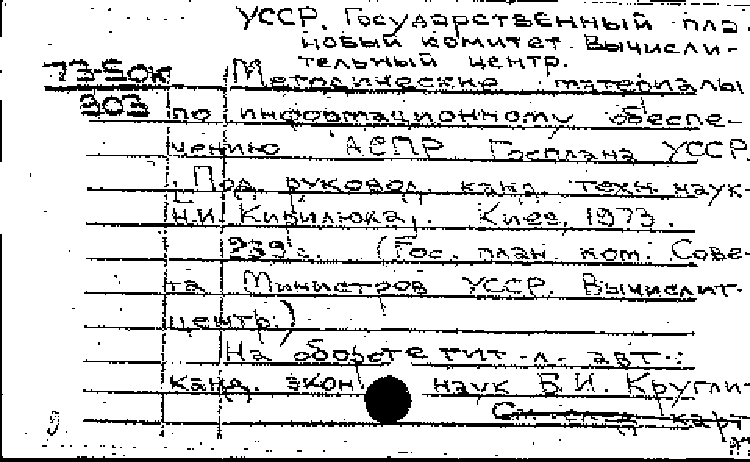 УССР. Государственный пла-
новый комитет. Вычисли-
тельный центр.
73-50к Методические материалы
903 по информационному обеспе-
чению АСПР Госплана УССР.
[Под руковод. канд. техн. наук
Н.И. Кирилюка]. Киев, 1973.
239 с. (Гос. план. ком. Сове-
та Министров УССР. Вычислит.
центр.)
На обороте тит. л. авт.:
канд. экон. наук Б.И. Кругли-
карт